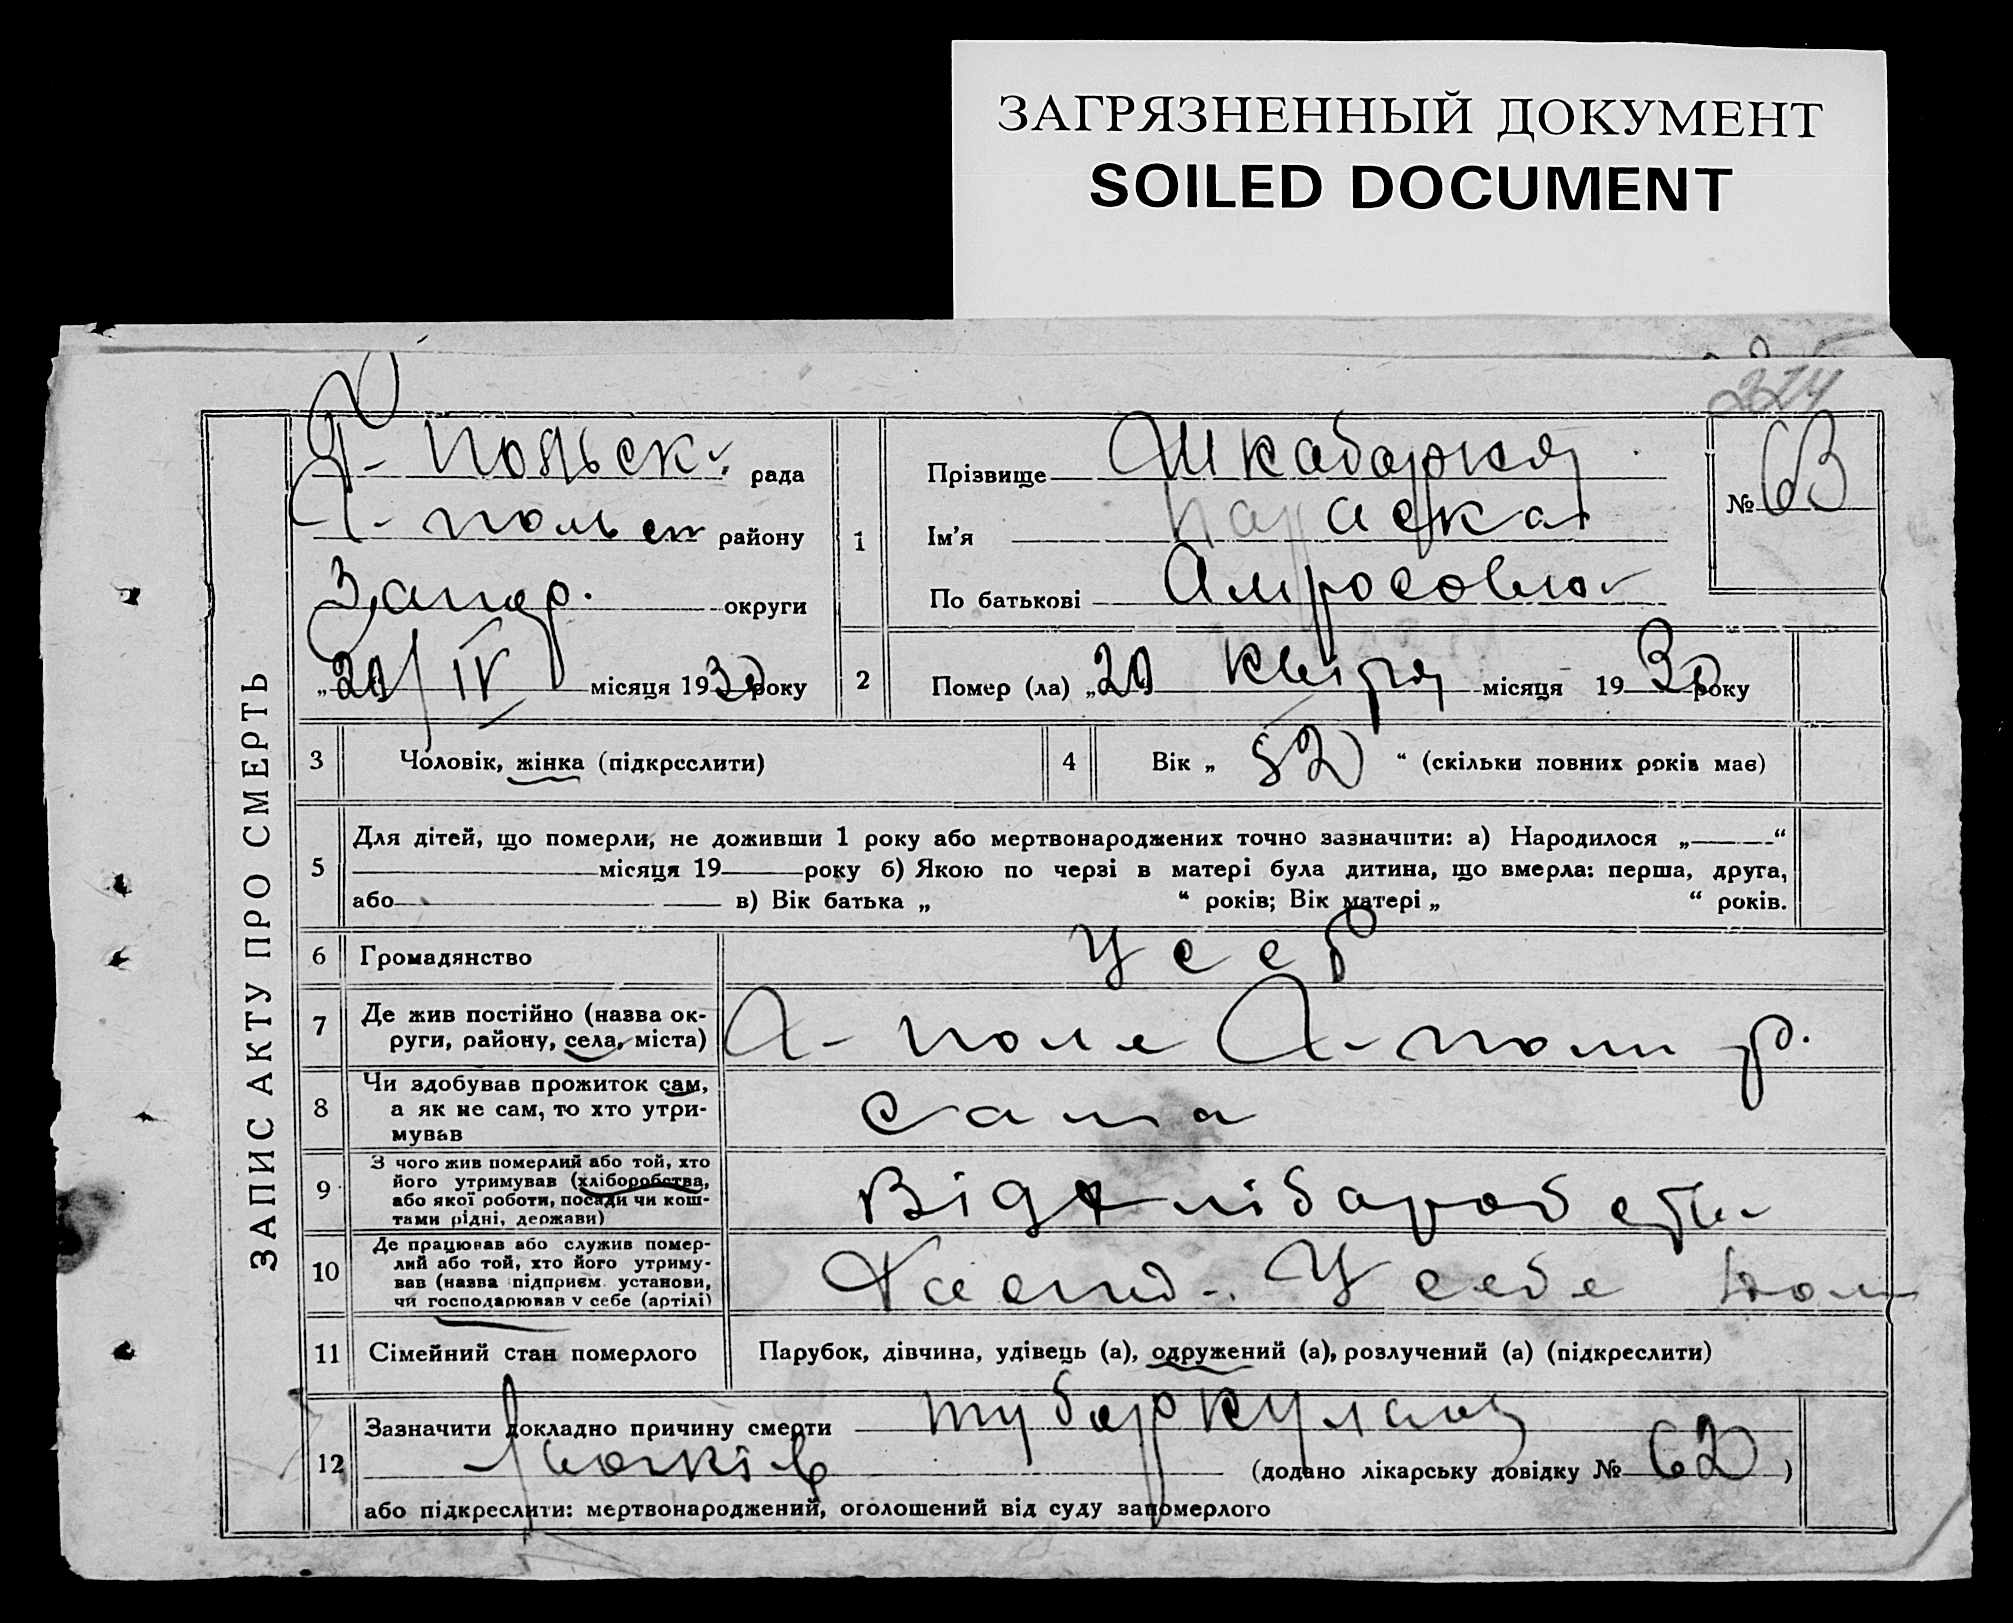 ЗАГРЯЗНЕННЫЙ ДОКУМЕНТ
SOILED DOCUMENT
324
ЗАПИС АКТУ ПРО СМЕРТЬ
рада
району
Запор. округи
„20/IV місяця 1930 року
1
Прізвище Шкабарня
Ім'я Параска
По батькові Амросовна
№ 63
2 Помер (ла) „20 квітня місяця 1930 року
3 Чоловік, жінка (підкреслити)
4 Вік „ 52 “ (скільки повних років має)
5 Для дітей, що померли, не доживши 1 року або мертвонароджених точно зазначити: а) Народилося „ “
місяця 19 року б) Якою по черзі в матері була дитина, що вмерла: перша, друга,
або в) Вік батька „ “ років; Вік матері „ “ років.
6 Громадянство Усср
7 Де жив постійно (назва ок-
руги, району, села, міста)
А-поле А-поли р.
8 Чи здобував прожиток сам,
а як не сам, то хто утри-
мував
сама
9 З чого жив померлий або той, хто
його утримував (хліборобства,
або якої роботи, посади чи кош-
тами рідні, держави)
Від хлібароб ства
10 Де працював або служив помер-
лий або той, хто його утриму-
вав (назва підприєм. установи,
чи господарював у себе (артілі)
У себе
11 Сімейний стан померлого Парубок, дівчина, удівець (а), одружений (а), розлучений (а) (підкреслити)
12 Зазначити докладно причину смерти тубаркульоз
(додано лікарську довідку № 62 )
або підкреслити: мертвонароджений, оголошений від суду запомерлого